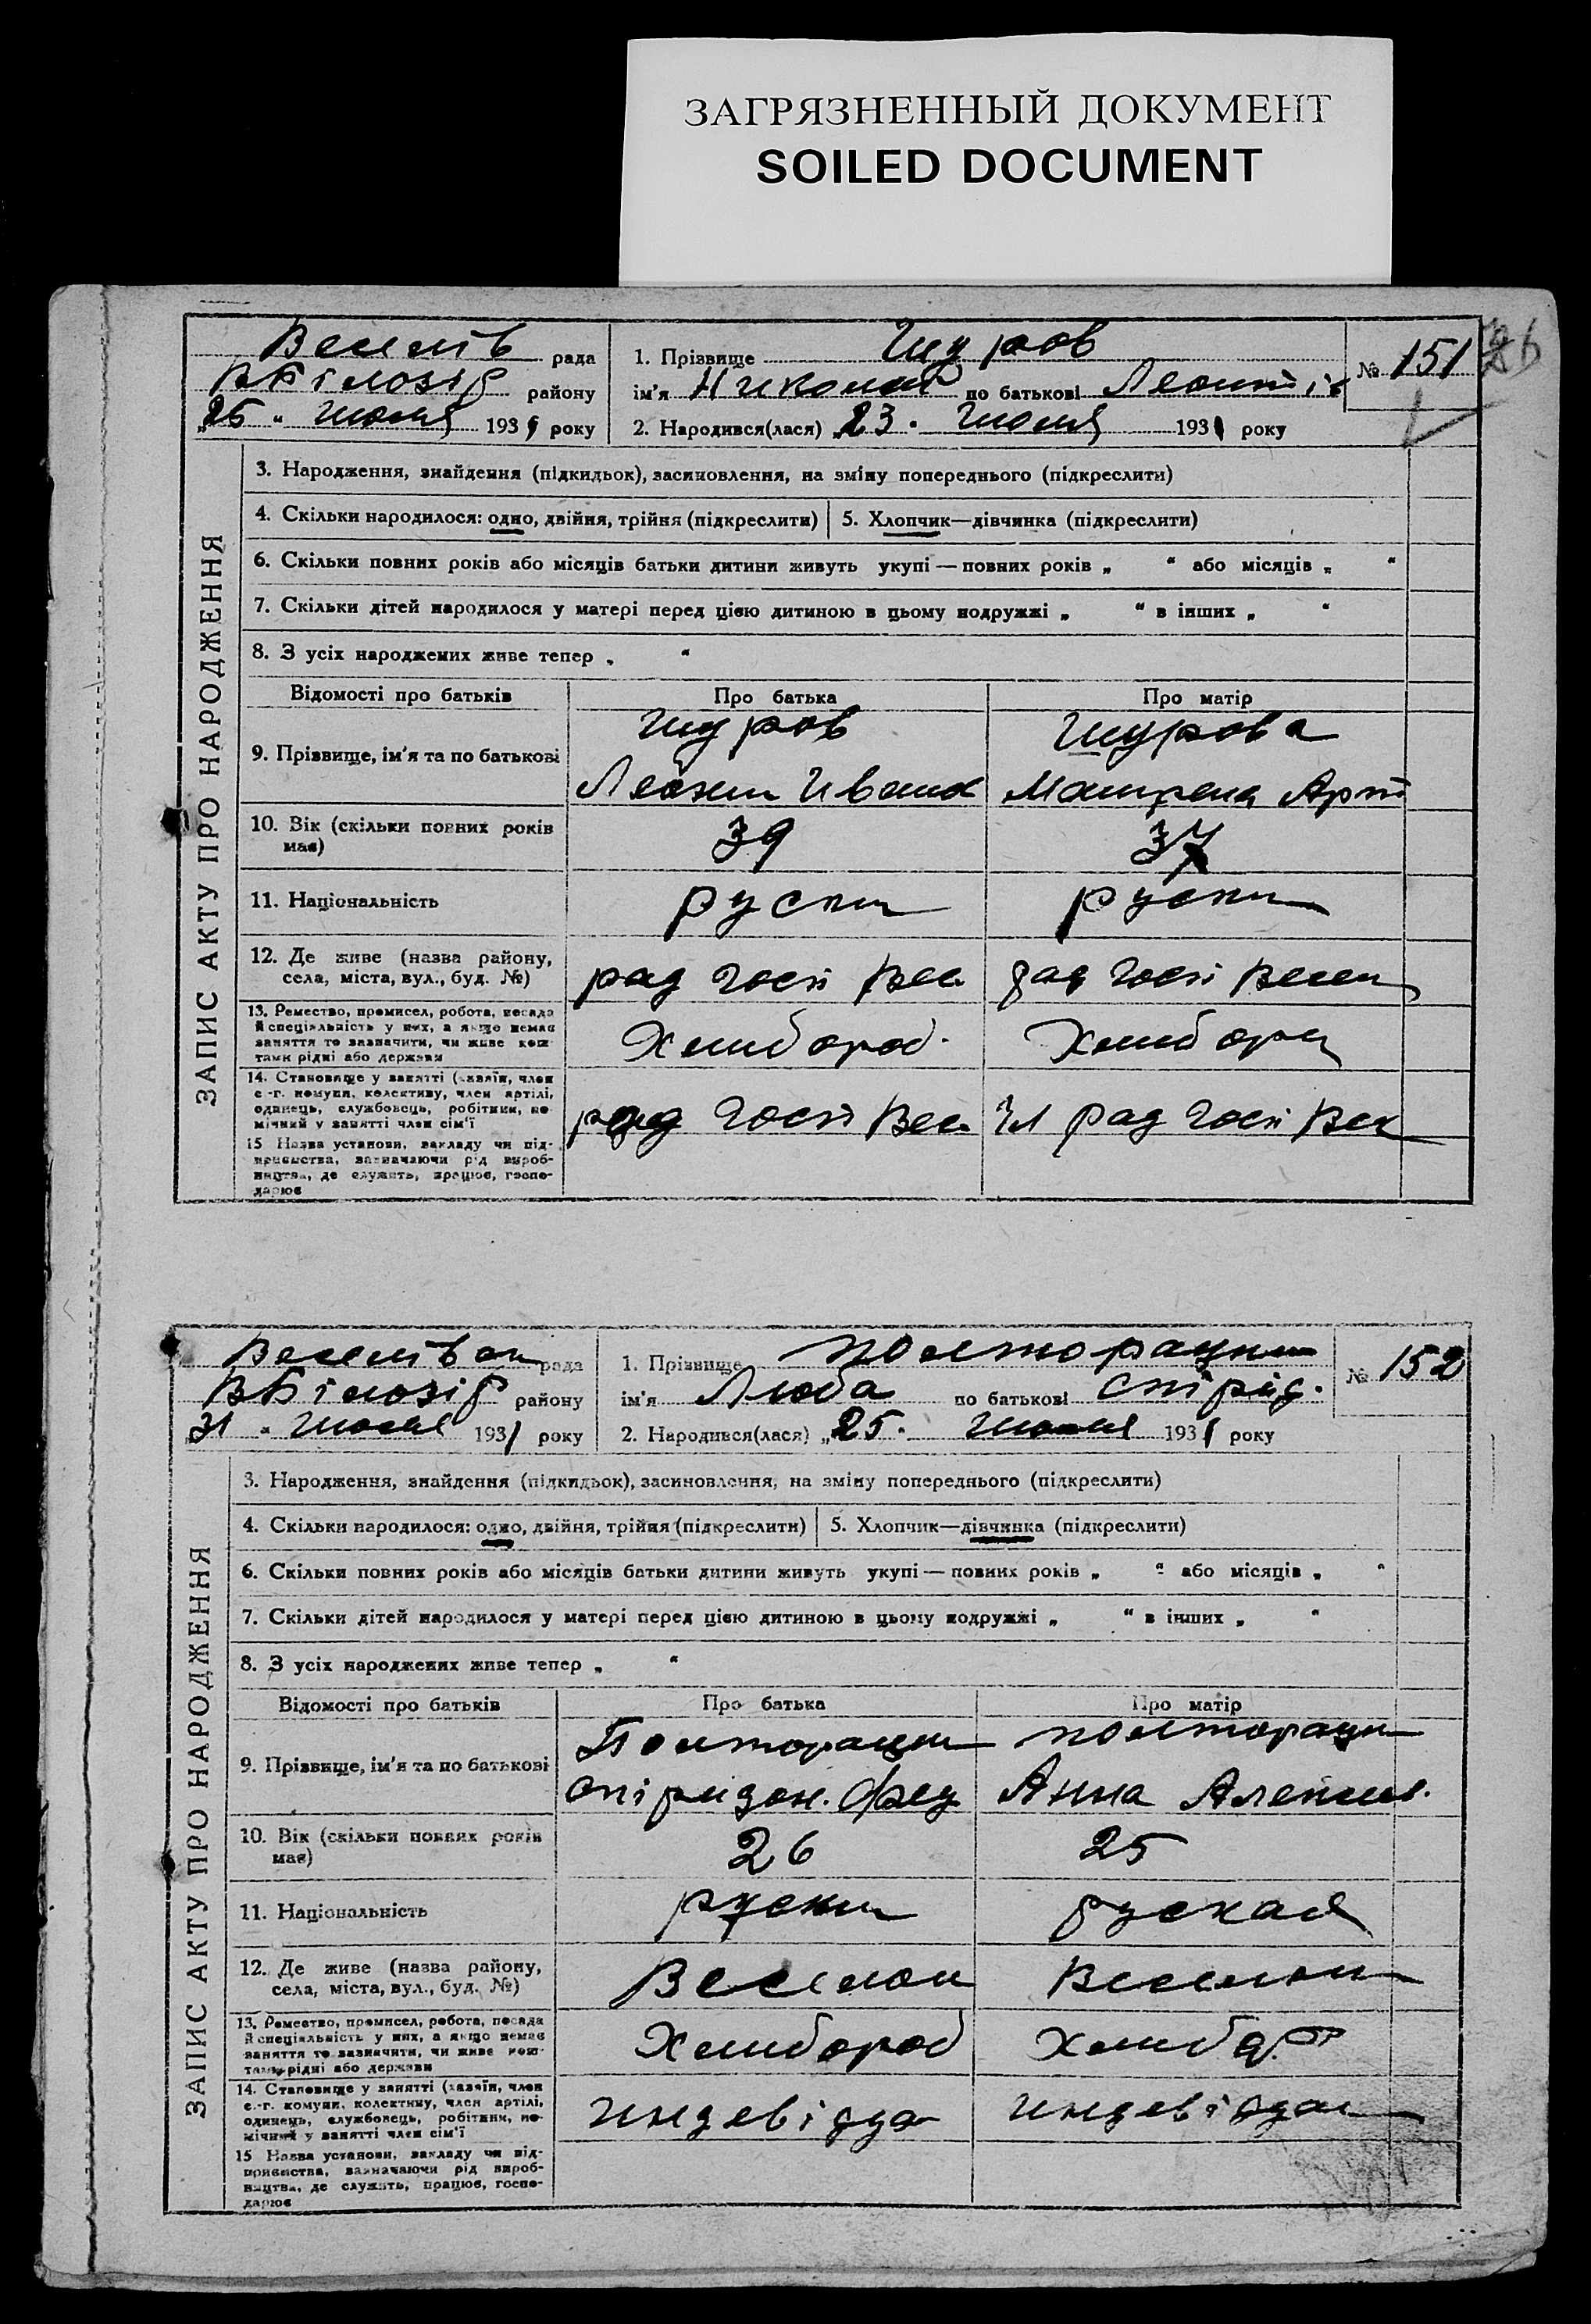 ЗАГРЯЗНЕННЫЙ ДОКУМЕНТ
SOILED DOCUMENT
рада
ВБілозір району
"26" июля 1931 року
1. Прізвище Шуров
ім'я Николай по батькові Леонтів
2. Народився(лася) "23. июля 1931 року
№ 151
ЗАПИС АКТУ ПРО НАРОДЖЕННЯ
3. Народження, знайдення (підкидьок), засиновлення, на зміну попереднього (підкреслити)
4. Скільки народилося: одно, двійня, трійня (підкреслити) 5. Хлопчик—дівчинка (підкреслити)
6. Скільки повних років або місяців батьки дитини живуть укупі — повних років „ “ або місяців „ “
7. Скільки дітей народилося у матері перед цією дитиною в цьому подружжі „ “ в інших „ “
8. З усіх народжених живе тепер „ “
Відомості про батьків Про батька Про матір
9. Прізвище, ім'я та по батькові
Шуров
Шурова
Матрена Арт
10. Вік (скільки повних років має) 39 37
11. Національність руски руски
12. Де живе (назва району, села, міста, вул., буд. №) рад госп Вес рад госп Весел
13. Ремество, промисел, робота, посада
й спеціяльність у них, а якщо немає
заняття то зазначити, чи живе кош-
тами рідні або держави
Хлибороб. Хлибороб
14. Становище у занятті (хазяїн, член
с.-г. комуни, колективу, член артілі,
одинець, службовець, робітник, по-
мічний у занятті член сім'ї
рад госп Вес Чл рад госп Вес
15 Назва установи, закладу чи під-
приємства, зазначаючи рід вироб-
ництва, де служить, працює, госпо-
дарює
рада
ВБілозір району
31 " июля 1931 року
1. Прізвище Полторацки
ім'я Люба по батькові Спірид.
2. Народився(лася) "25. июля 1931 року
№ 152
ЗАПИС АКТУ ПРО НАРОДЖЕННЯ
3. Народження, знайдення (підкидьок), засиновлення, на зміну попереднього (підкреслити)
4. Скільки народилося: одно, двійня, трійня (підкреслити) 5. Хлопчик—дівчинка (підкреслити)
6. Скільки повних років або місяців батьки дитини живуть укупі — повних років „ “ або місяців „ “
7. Скільки дітей народилося у матері перед цією дитиною в цьому подружжі „ “ в інших „ “
8. З усіх народжених живе тепер „ “
Відомості про батьків Про батька Про матір
9. Прізвище, ім'я та по батькові
Полторацки Полторацки
Спіридон. Фед Анна Алексеев.
10. Вік (скільки повних років має) 26 25
11. Національність руски руская
12. Де живе (назва району, села, міста, вул., буд. №) Веселои Веселои
13. Ремество, промисел, робота, посада
й спеціяльність у них, а якщо немає
заняття то зазначити, чи живе кош-
тами рідні або держави
Хлибороб
14. Становище у занятті (хазяїн, член
с.-г. комуни, колективу, член артілі,
одинець, службовець, робітник, по-
мічний у занятті член сім'ї
индевідуа индевідуал
15 Назва установи, закладу чи під-
приємства, зазначаючи рід вироб-
ництва, де служить, працює, госпо-
дарює